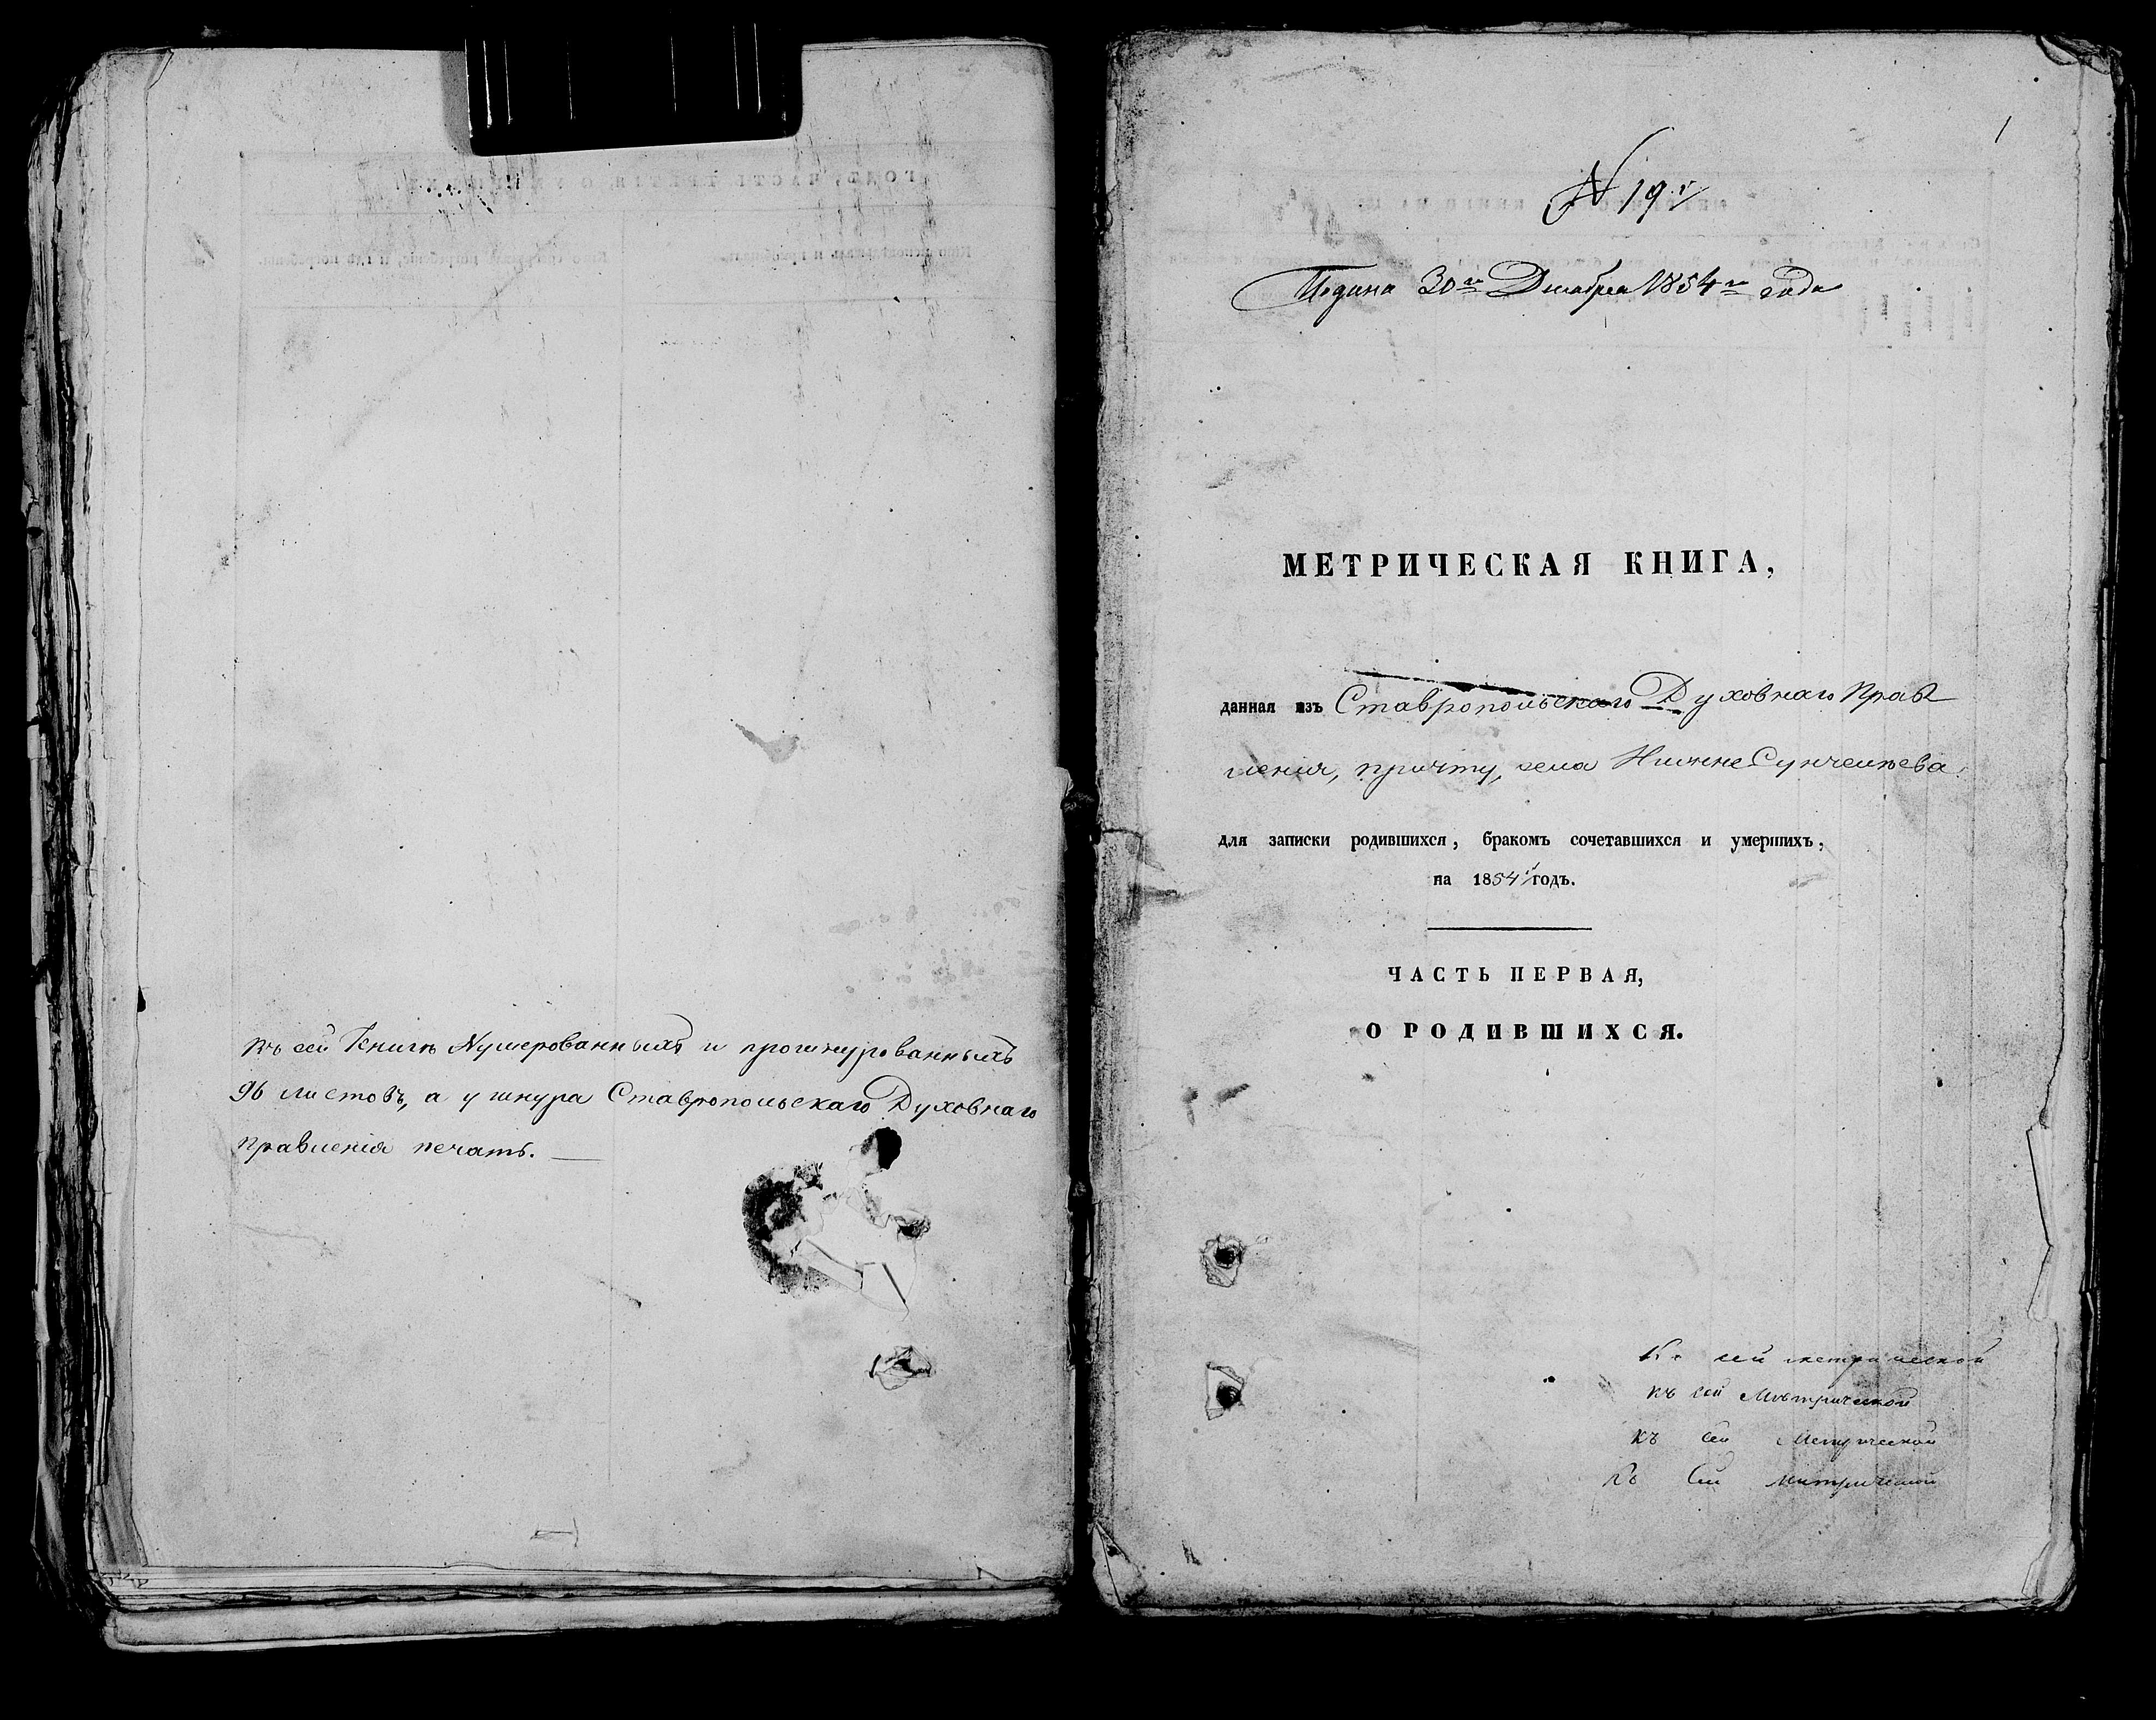 къ сей Книгѣ Нумерованныхъ и прошнурованныхъ
96 листовъ, а у шнура Ставропольскаго Духовнаго
правленія печать.
1
N 19й
Подана 30го Декабря 1854го года
МЕТРИЧЕСКАЯ КНИГА,
данная изъ Ставропольскаго Духовнаго Прав
ленія, причту, села Нижне Сунчелѣева
для записки родившихся, бракомъ сочетавшихся и умершихъ,
на 1854й годъ.
ЧАСТЬ ПЕРВАЯ,
О РОДИВШИХСЯ.
Къ сей метрической
къ сей Метрической
къ сей Метрической
Къ Сей Метрической